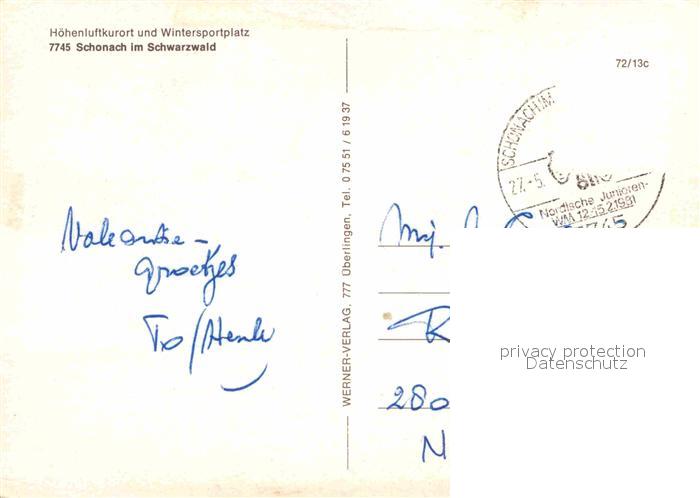 Höhenluftkurort und Wintersportplatz
7745 Schonach im Schwarzwald
72/13c
SCHONACH IM
27.-5.
Nordische Junioren-
WM 12.-15.2.1981
7745
WERNER-VERLAG, 777 Überlingen, Tel. 0 75 51 / 6 19 37
Vakantie-
groetjes
To/Henk
280
N
privacy protection
Datenschutz